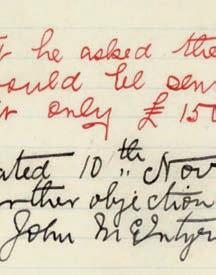 he asked the
would be sen
only £ 150
ated 10th Nov
rther objection
John McEntyr